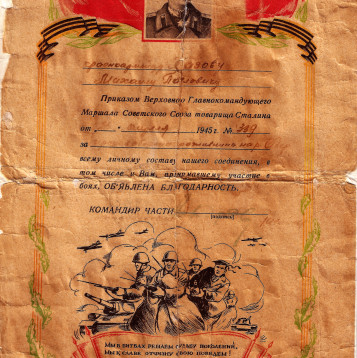 Приказом Верховного Главнокомандующего
Маршала Советского Союза товарища Сталина
от 1945 г. №
за
всему личному составу нашего соединения, в
том числе и Вам, принимавшему участие в
боях, ОБ'ЯВЛЕНА БЛАГОДАРНОСТЬ.
КОМАНДИР ЧАСТИ
(подпись)
МЫ В БИТВАХ РЕШАЕМ СУДЬБУ ПОКОЛЕНИЙ,
МЫ К СЛАВЕ ОТЧИЗНУ СВОЮ ПОВЕДЕМ!